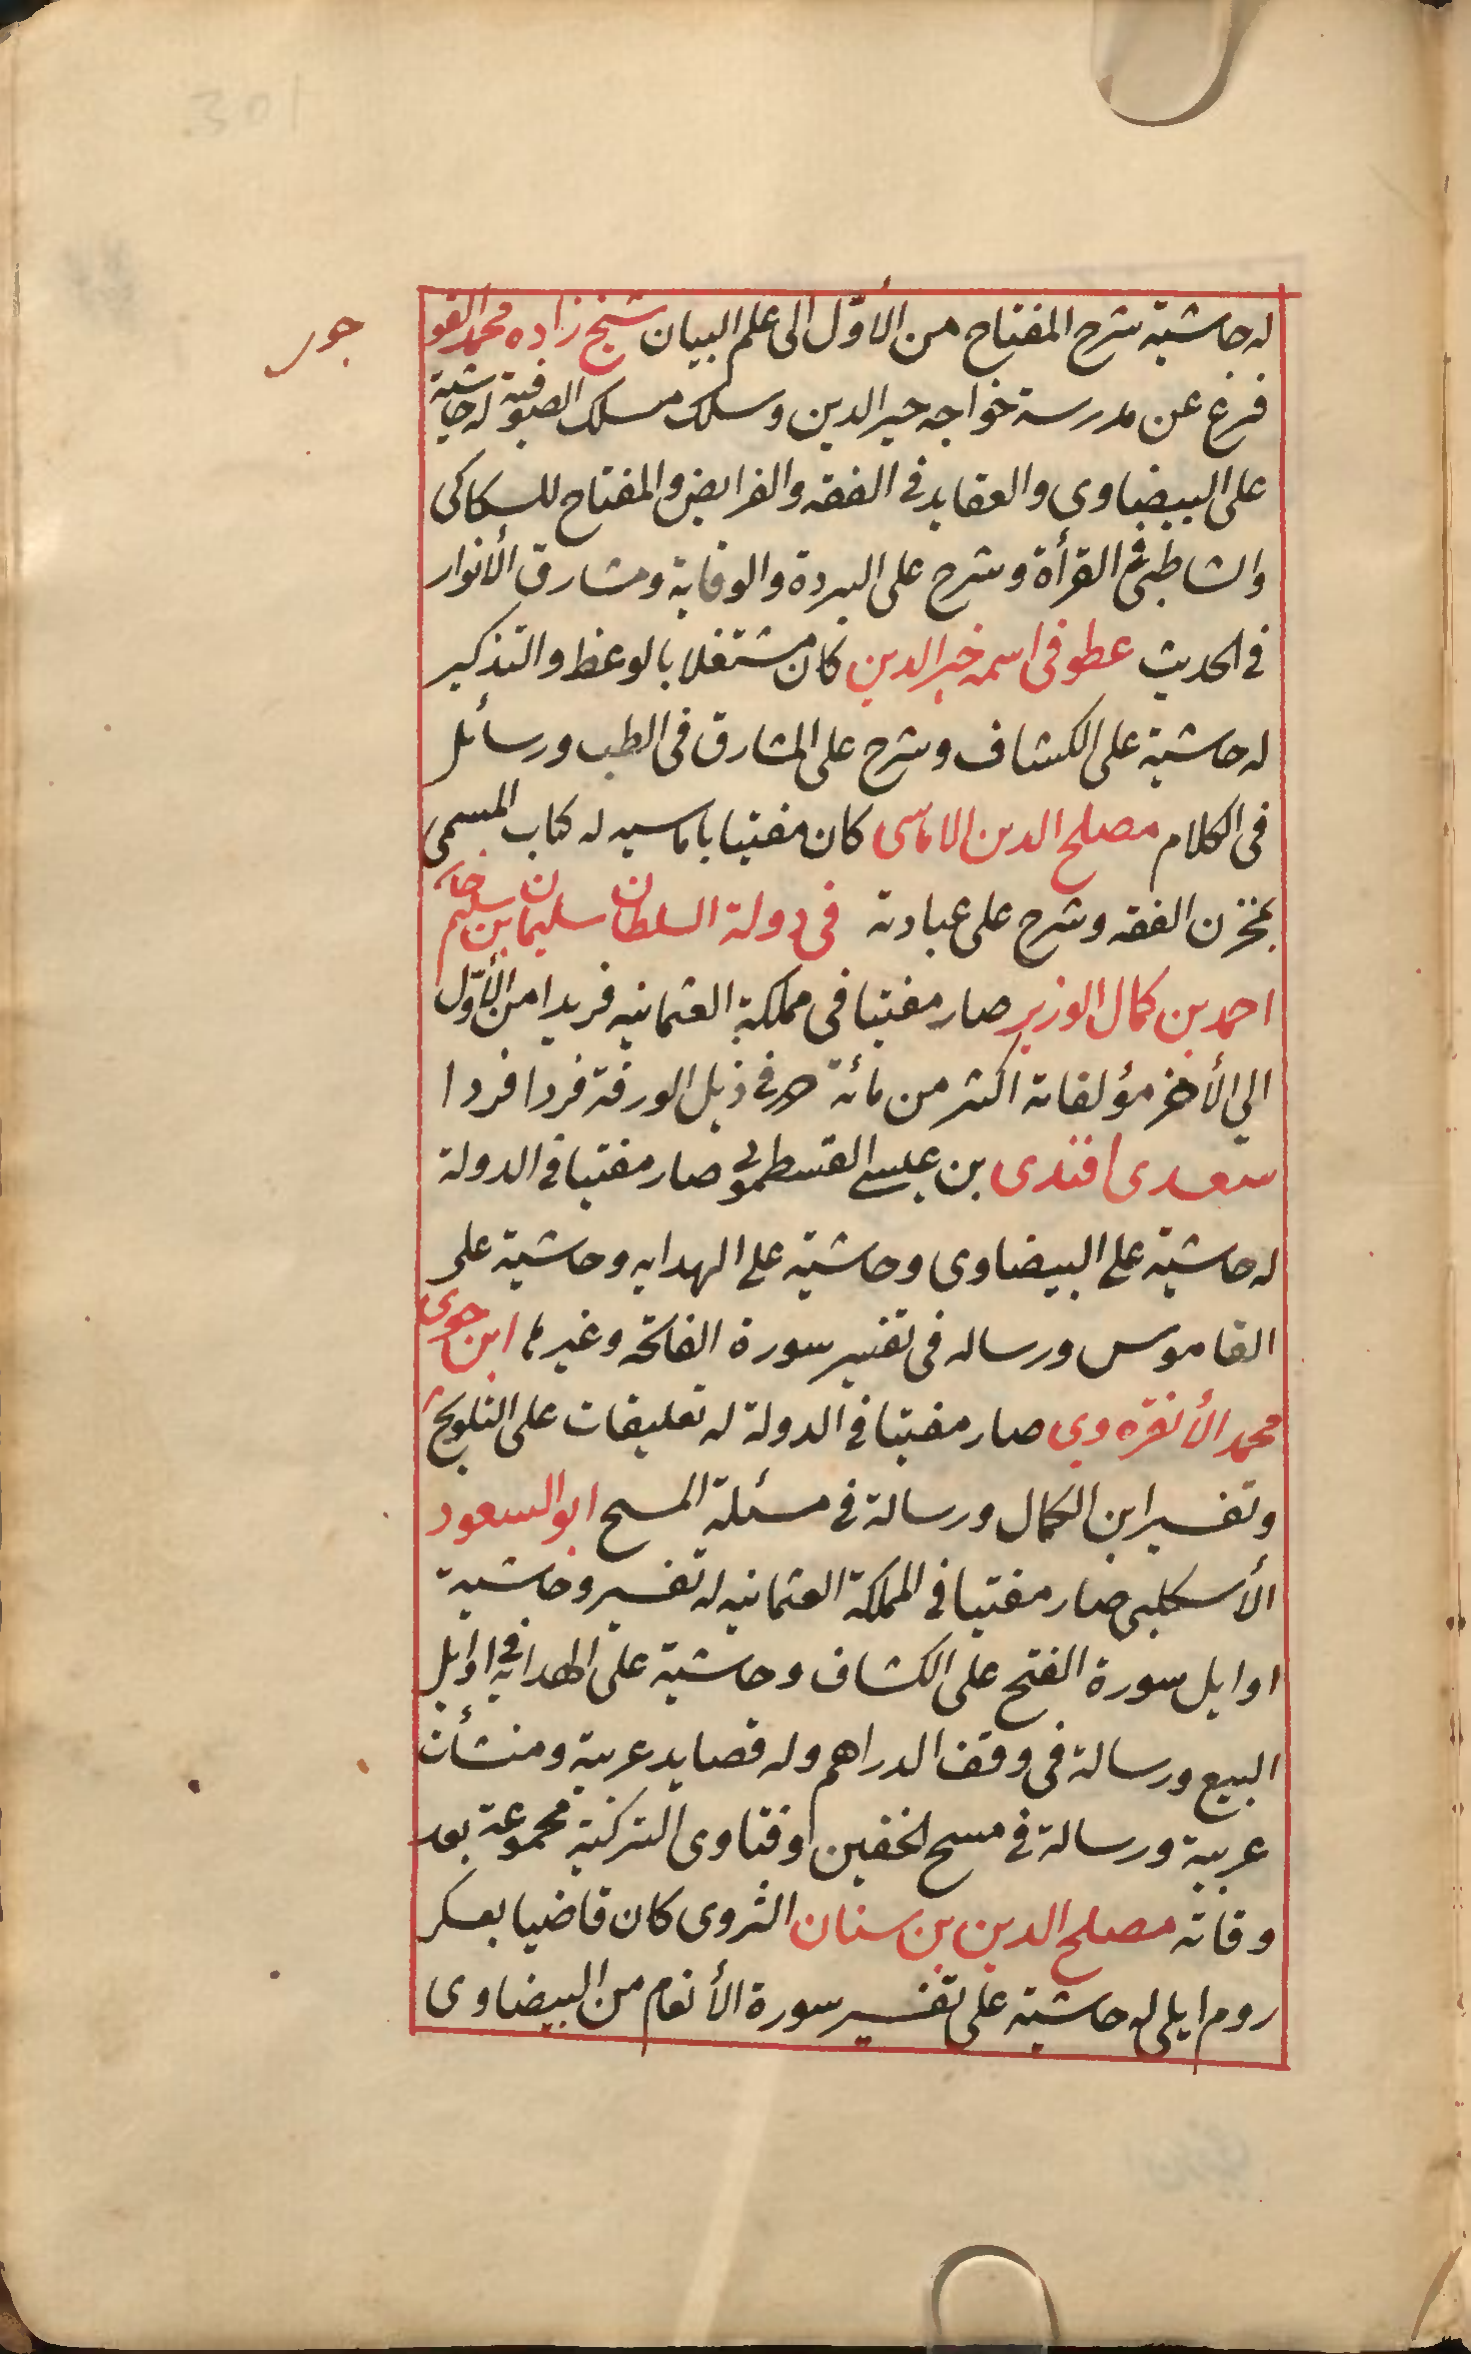 301
له حاشية شرح المفتاح من الأوّل الى علم البيان شيخ زاده محمد القو
جوى
فرغ عن مدرسة خواجه خير الدين وسلك مسلك الصوفية له حاشية
على البيضاوى والعقايد فى الفقه والفرايض والمفتاح للسكاكى
والشاطبى فى القرأة وشرح على البردة والوقاية ومشارق الأنوار
فى الحديث عطوفى اسمه خير الدين كان مشتغلا بالوعظ والتذكير
له حاشية على الكشاف وشرح على المشارق فى الطب ورسائل
فى الكلام مصلح الدين الاماسى كان مفتيا باماسيه له كتاب المسمى
بمخزن الفقه وشرح على عبادته فى دولة السلطان سليمان بن سليم خان
احمد بن كمال الوزير صار مفتيا فى مملكة العثمانيه فريدا من الأوّل
الى الأخر مؤلفاته اكثر من مائة حرر فى ذيل الورقة فردا فردا
سعدى افندى بن عيسى القسطمونى صار مفتيا فى الدولة
له حاشية على البيضاوى وحاشية على الهدايه وحاشية على
القاموس ورساله فى تفسير سورة الفاتحه وغيرها ابن جوى
محمد الأنقره وى صار مفتيا فى الدولة له تعليقات على التلويح
وتفسير ابن الكمال ورسالة فى مسئلة المسح ابو السعود
الأسكليبى صار مفتيا فى المملكة العثمانيه له تفسير وحاشية
اوايل سورة الفتح على الكشاف وحاشية على الهدايه فى اوايل
البيع ورسالة فى وقف الدراهم وله قصايد عربية ومنشأت
عربية ورسالة فى مسح الخفين وفتاوى التركية مجموعة بعد
وفاته مصلح الدين بن سنان الثروى كان قاضيا بعسكر
روم ايلى له حاشية على تفسير سورة الأنعام من البيضاوى